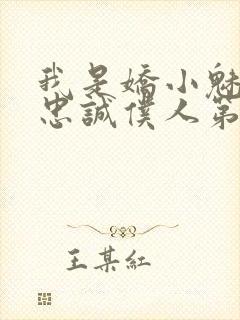 我是嬌小魅
忠誠僕人第
王某紅